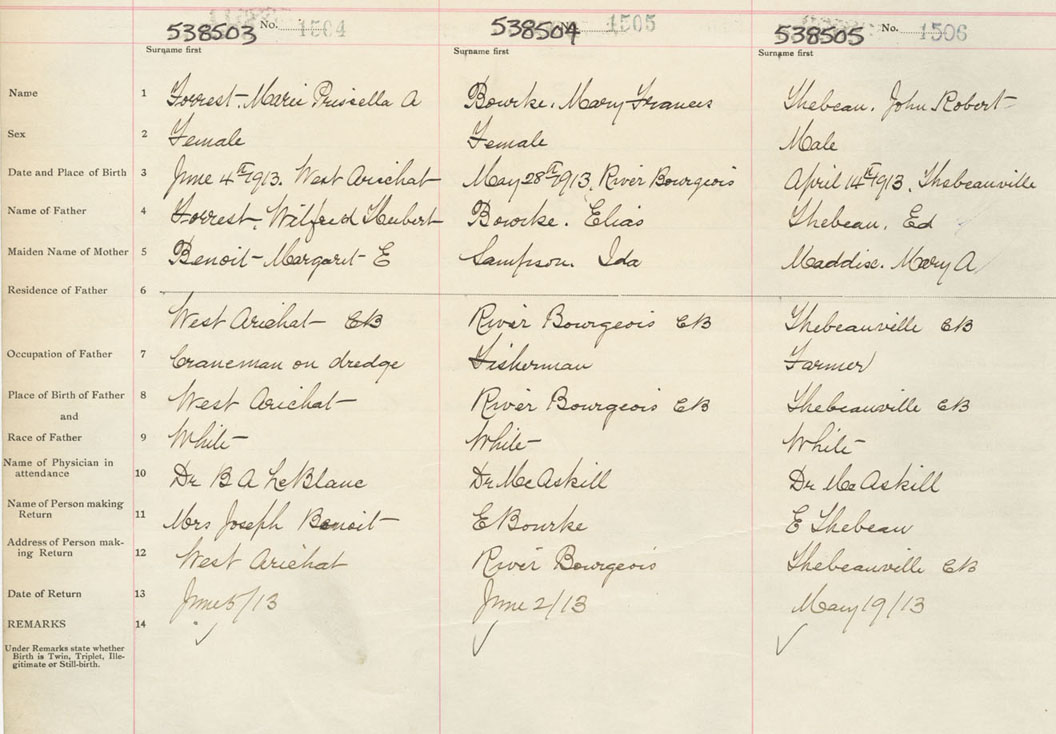 538503 No. 1504 538504 No. 1505 538505 No. 1506
Surname first Surname first Surname first
Name 1 Forrest Marie Priscella A Bourke, Mary Frances Thebeau, John Robert
Sex 2 Female Female Male
Date and Place of Birth 3 June 4th 1913. West Arichat May 28th 1913, River Bourgeois April 14th 1913, Thebeauville
Name of Father 4 Forrest, Wilfred Hubert Bourke, Elias Thebeau, Ed
Maiden Name of Mother 5 Benoit Margaret E Sampson Ida Maddix, Mary A
Residence of Father 6
West Arichat CB River Bourgeois CB Thebeauville CB
Occupation of Father 7 Craneman on dredge Fisherman Farmer
Place of Birth of Father 8 West Arichat River Bourgeois CB Thebeauville CB
and
Race of Father 9 White White White
Name of Physician in
attendance 10 Dr B A LeBlanc Dr McAskill Dr McAskill
Name of Person making
Return 11 Mrs Joseph Benoit E Bourke E Thebeau
Address of Person mak-
ing Return 12 West Arichat River Bourgeois Thebeauville CB
Date of Return 13 June 5/13 June 2/13 May 19/13
REMARKS 14
Under Remarks state whether
Birth is Twin, Triplet, Ille-
gitimate or Still-birth.